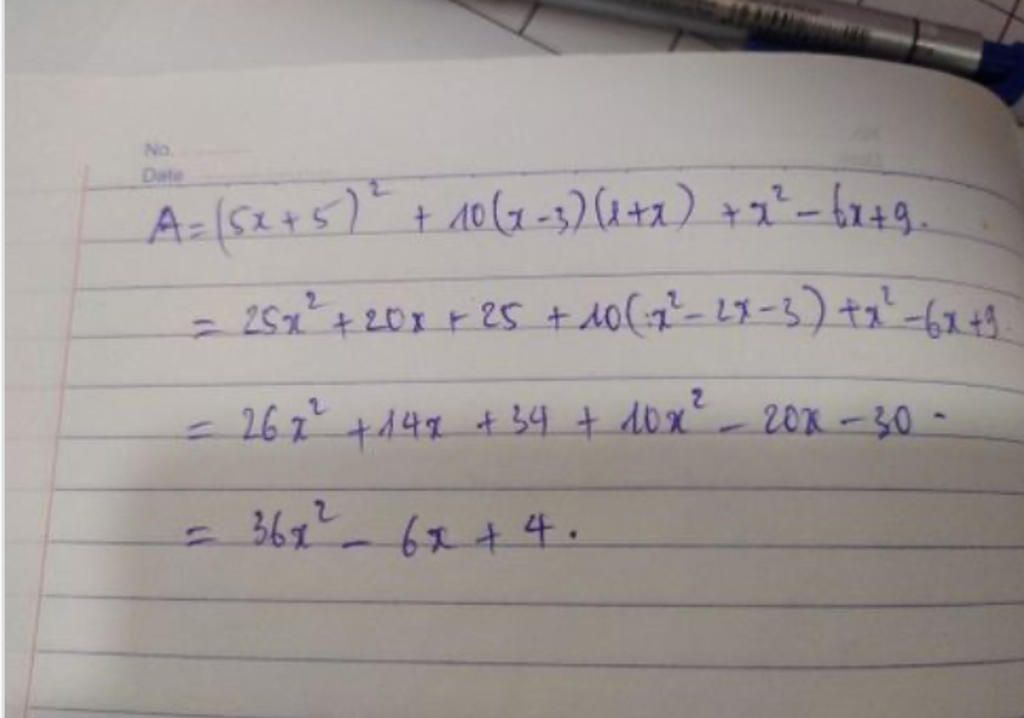 No.
Date
A = (5x + 5)² + 10(x - 3)(1 + x) + x² - 6x + 9.
= 25x² + 20x + 25 + 10(x² - 2x - 3) + x² - 6x + 9.
= 26x² + 14x + 34 + 10x² - 20x - 30
= 36x² - 6x + 4.